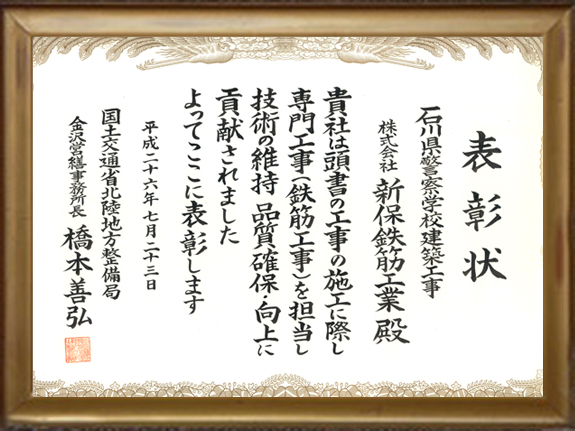 表彰状
石川県警察学校建築工事
株式会社 新保鉄筋工業 殿
貴社は頭書の工事の施工に際し
専門工事(鉄筋工事)を担当し
技術の維持 品質確保・向上に
貢献されました
よってここに表彰します
平成二十六年七月二十三日
国土交通省北陸地方整備局
金沢営繕事務所長 橋本善弘